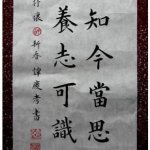 知今當思
養志可識
新春譚慶孝書